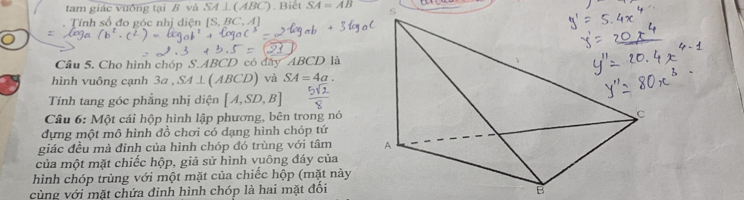 tam giác vuông tại B và SA ⊥ (ABC). Biết SA = AB
. Tính số đo góc nhị diện [S, BC, A]
= log_a (b² . c³) = log_a b² + log_a c³ = 2 log_a b + 3 log_a c
= 2.3 + 3.5 = 21
Câu 5. Cho hình chóp S.ABCD có đáy ABCD là
hình vuông cạnh 3a, SA ⊥ (ABCD) và SA = 4a.
Tính tang góc phẳng nhị diện [A, SD, B] 5√2/8
Câu 6: Một cái hộp hình lập phương, bên trong nó
đựng một mô hình đồ chơi có dạng hình chóp tứ
giác đều mà đỉnh của hình chóp đó trùng với tâm
của một mặt chiếc hộp, giả sử hình vuông đáy của
hình chóp trùng với một mặt của chiếc hộp (mặt này
cùng với mặt chứa đỉnh hình chóp là hai mặt đối
S
A
B
C
y' = 5.4x⁴
y' = 20x⁴
y'' = 20.4x⁴⁻¹
y'' = 80x³.